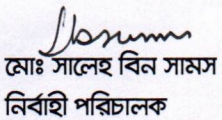 মোঃ সালেহ বিন সামস
নির্বাহী পরিচালক